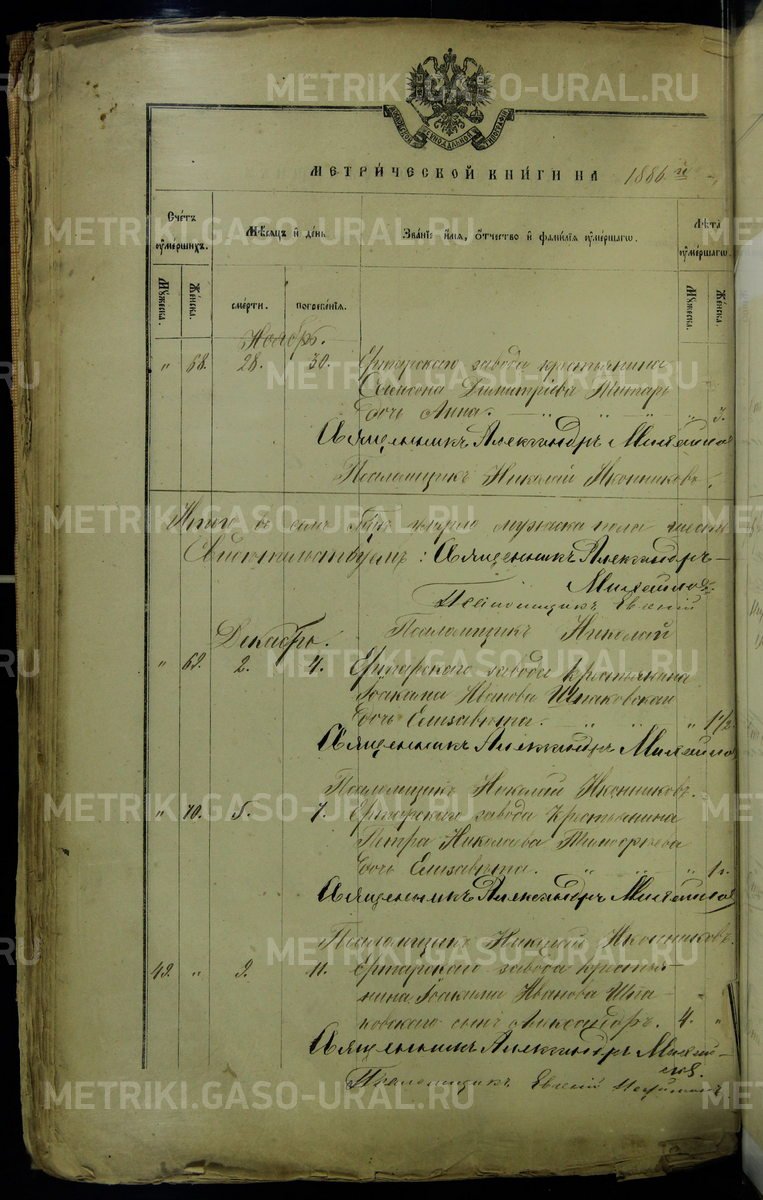 МЕТРИ́ЧЕСКОЙ КНИ́ГИ НА 1886 й
Сче́тъ ѹме́ршихъ.
Мѣ́сяцъ и҆ де́нь
Зва́нїе и҆́мя, ѻ҆́тчество и҆ фамі́лїя ѹме́ршагѡ.
Лѣ́та ѹме́ршагѡ.
Мꙋ́жеска.
Же́нска.
сме́рти.
погребе́нїя.
Мꙋ́жеска.
Же́нска.
Ноябрь.
" 68. 28. 30. Ертарскаго завода крестьянина
Димитріева
дочь Анна. " " " " 3.
Священникъ Александръ Михайлов
Псаломщикъ Николай Иконниковъ.
Итого въ семъ умерло мужска пола шесть
Свидетельствуемъ: Священникъ Александръ
Михайлов
Евгений
Псаломщикъ Николай
Декабрь.
" 69. 2. 4. Ертарскаго завода крестьянина
Іоакима Иванова Шпаковскаго
дочь Елизавета. " " " 1 1/2
Священникъ Александръ Михайлов
Псаломщикъ Николай Иконниковъ.
" 70. 5. 7. Ертарскаго завода крестьянина
Петра Николаева
дочь Елизавета. " " " 1 г.
Священникъ Александръ Михайлов
Псаломщикъ Николай Иконниковъ.
42. " 9. 11. Ертарскаго завода кресть-
янина Іоакима Иванова Шпа-
ковскаго сынъ Александръ. 4. "
Священникъ Александръ Михай-
лов.
Псаломщикъ Евгений
METRIKI.GASO-URAL.RU